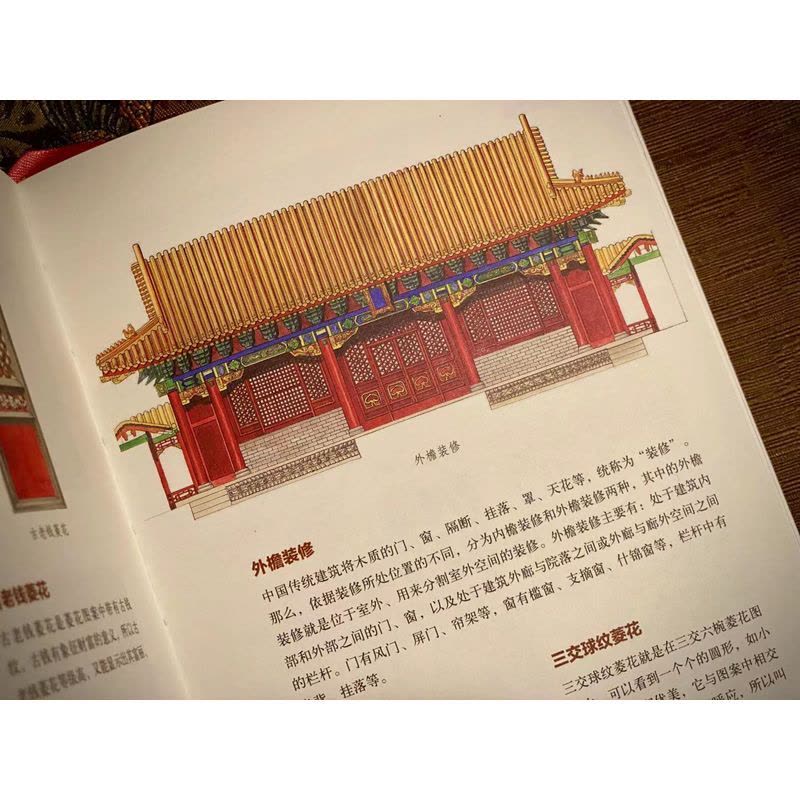 古老钱菱花
老钱菱花
古老钱菱花是菱花图案中带有古钱
纹，古钱有象征财富的意义，所以古
老钱菱花等级高，又能显示出其富丽，
外檐装修
外檐装修
中国传统建筑将木质的门、窗、隔断、挂落、罩、天花等，统称为“装修”。
那么，依据装修所处位置的不同，分为内檐装修和外檐装修两种，其中的外檐
装修就是位于室外、用来分割室外空间的装修。外檐装修主要有：处于建筑内
部和外部之间的门、窗，以及处于建筑外廊与院落之间或外廊与廊外空间之间
的栏杆。门有风门、屏门、帘架等，窗有槛窗、支摘窗、什锦窗等，栏杆中有
背、挂落等。
三交球纹菱花
三交球纹菱花就是在三交六椀菱花图
可以看到一个个的圆形，如小
优美，它与图案中相交
呼应，所以叫